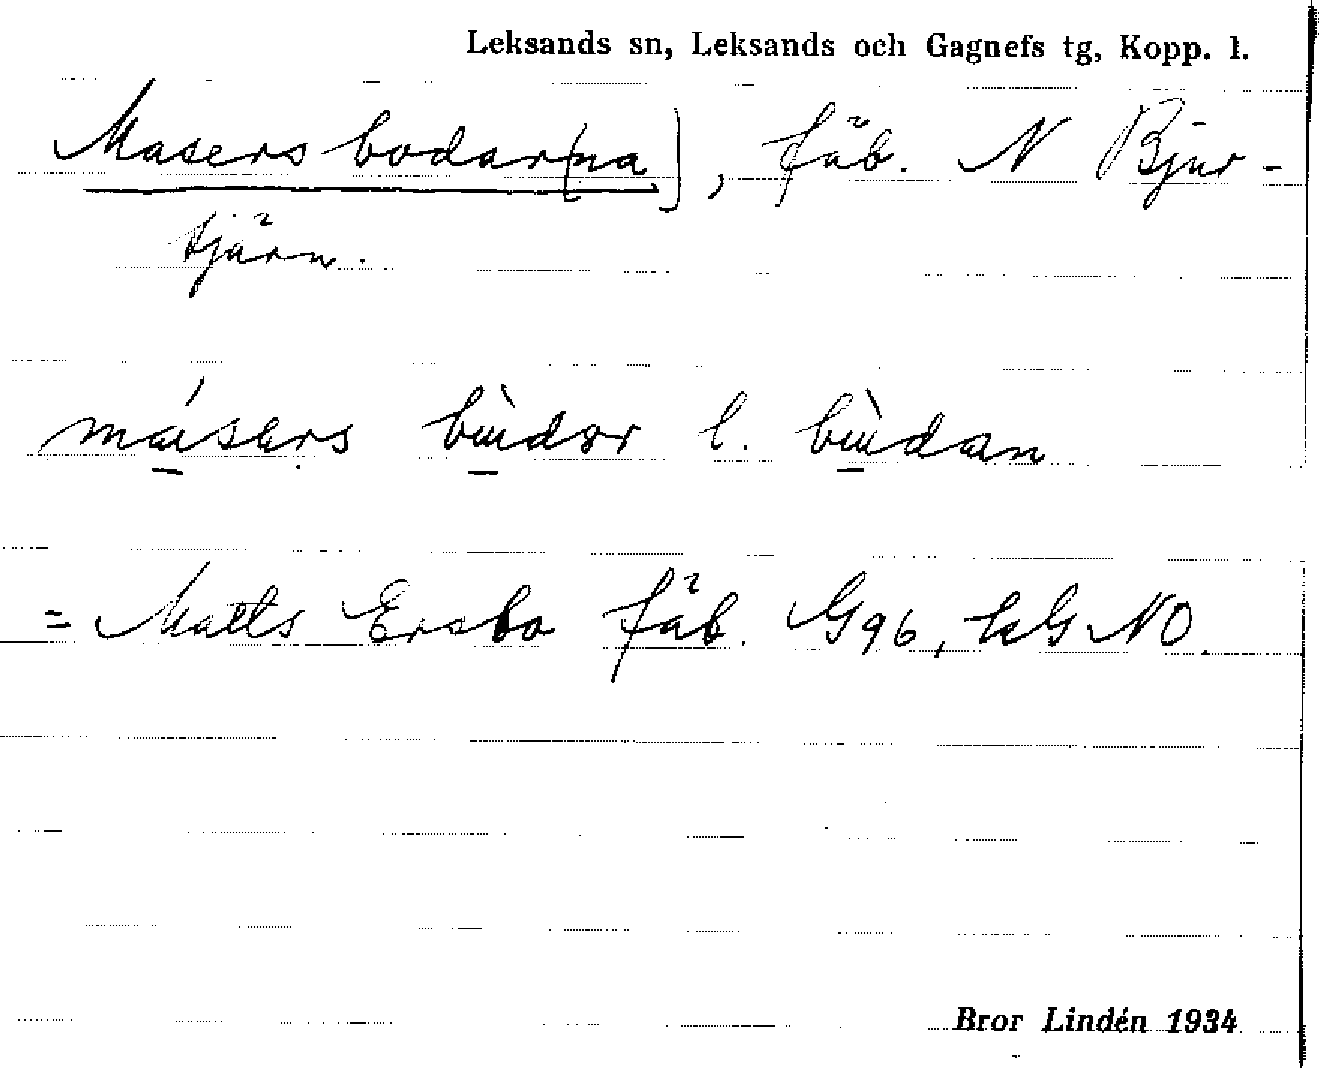 Leksands sn, Leksands och Gagnefs tg, Kopp. l.
Masers bodar[na], fäb. N Bjur-
tjärn.
másers bùdar l. bùdan
= Matts Ersbo fäb. G96, LG NO.
Bror Lindén 1934